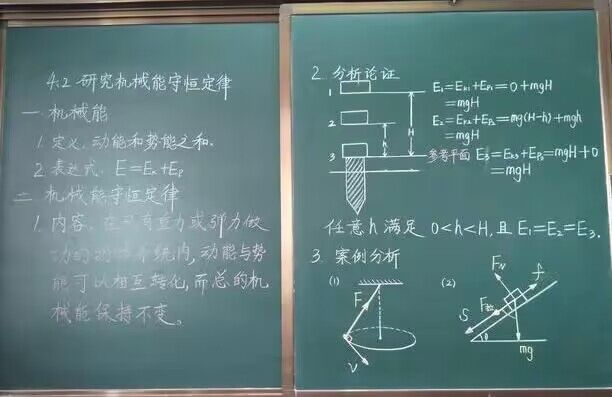 4.2 研究机械能守恒定律
一 机械能
1. 定义: 动能和势能之和.
2. 表达式: E=Eₖ+Eₚ
二 机械能守恒定律
1. 内容: 在只有重力或弹力做
功的物体系统内, 动能与势
能可以相互转化, 而总的机
械能保持不变。
2. 分析论证
1
2
3
H
h
E₁=Eₖ₁+Eₚ₁=0+mgH
=mgH
E₂=Eₖ₂+Eₚ₂=mg(H-h)+mgh
=mgH
参考平面 E₃=Eₖ₃+Eₚ₃=mgH+0
=mgH
任意h满足 0<h<H, 且 E₁=E₂=E₃.
3. 案例分析
(1)
F
v
(2)
F_N
f
S
mg
θ